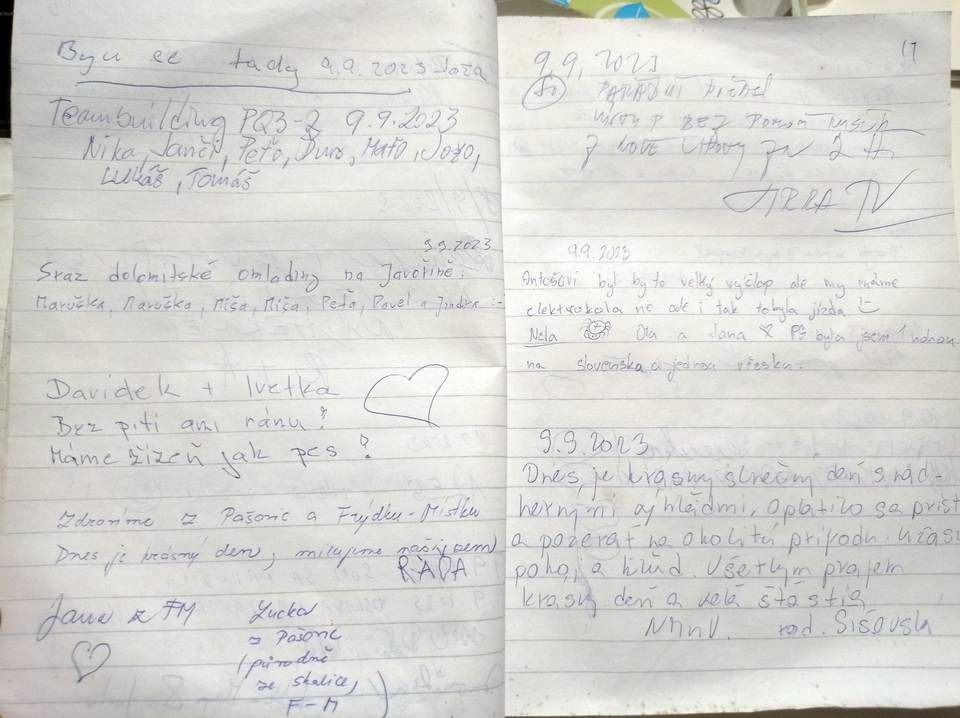 Byli sme tady 9.9.2023 Joža
Teambuilding PQ3-2 9.9.2023
Nika, Janči, Peťo, Ďuro, Maťo, Jožo,
Lukáš, Tomáš
9.9.2023
Sraz dolomitské omladiny na Javořině:
Maruška, Maruška, Míša, Míša, Peťa, Pavel a Jindra :-)
Davidek + Ivetka
Bez piti ani ránu!
Máme žízeň jak pes!
Zdravíme z Pašovic a Frýdku-Místku
Dnes je krásný den, milujeme naši zem
RÁĎA
Jana z FM
Lucka
z Pašovic
(původně
ze Skalice,
F-M)
17
9.9.2023
BEZ
z Nove za 2 H
9.9.2023
Antošovi byl by to velký výšlap ale my máme
elektrokola no ale i tak to byla jízda
Nela Ola a Jana PS byla jsem 1 nohou
na slovensku a jednou v česku.
9.9.2023
Dnes je krasny slnečny deň s nád-
hernými výhľadmi, oplatilo sa prísť
a pozerať na okolitú prírodu. Úžasný
pokoj a kľud. Všetkým prajem
krasny deň a veľa šťastia
NMnV. rod. Šišovska